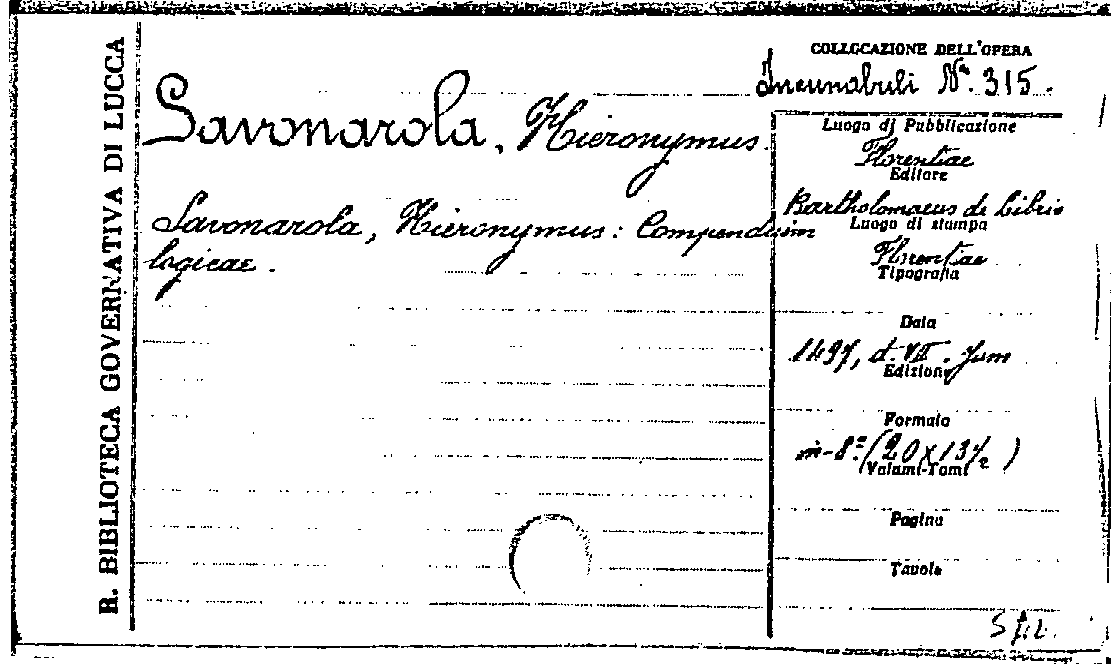 R. BIBLIOTECA GOVERNATIVA DI LUCCA
COLLOCAZIONE DELL'OPERA
Incunabuli N.º 315.
Savonarola, Hieronymus.
Savonarola, Hieronymus: Compendium
logicae.
Luogo di Pubblicazione
Florentiae
Editore
Bartholomaeus de Libris
Luogo di stampa
Florentiae
Tipografia
Data
1497, d. VII. Jun
Edizione
Formato
in-8º (20x13½)
Volumi-Tomi
Pagine
Tavole